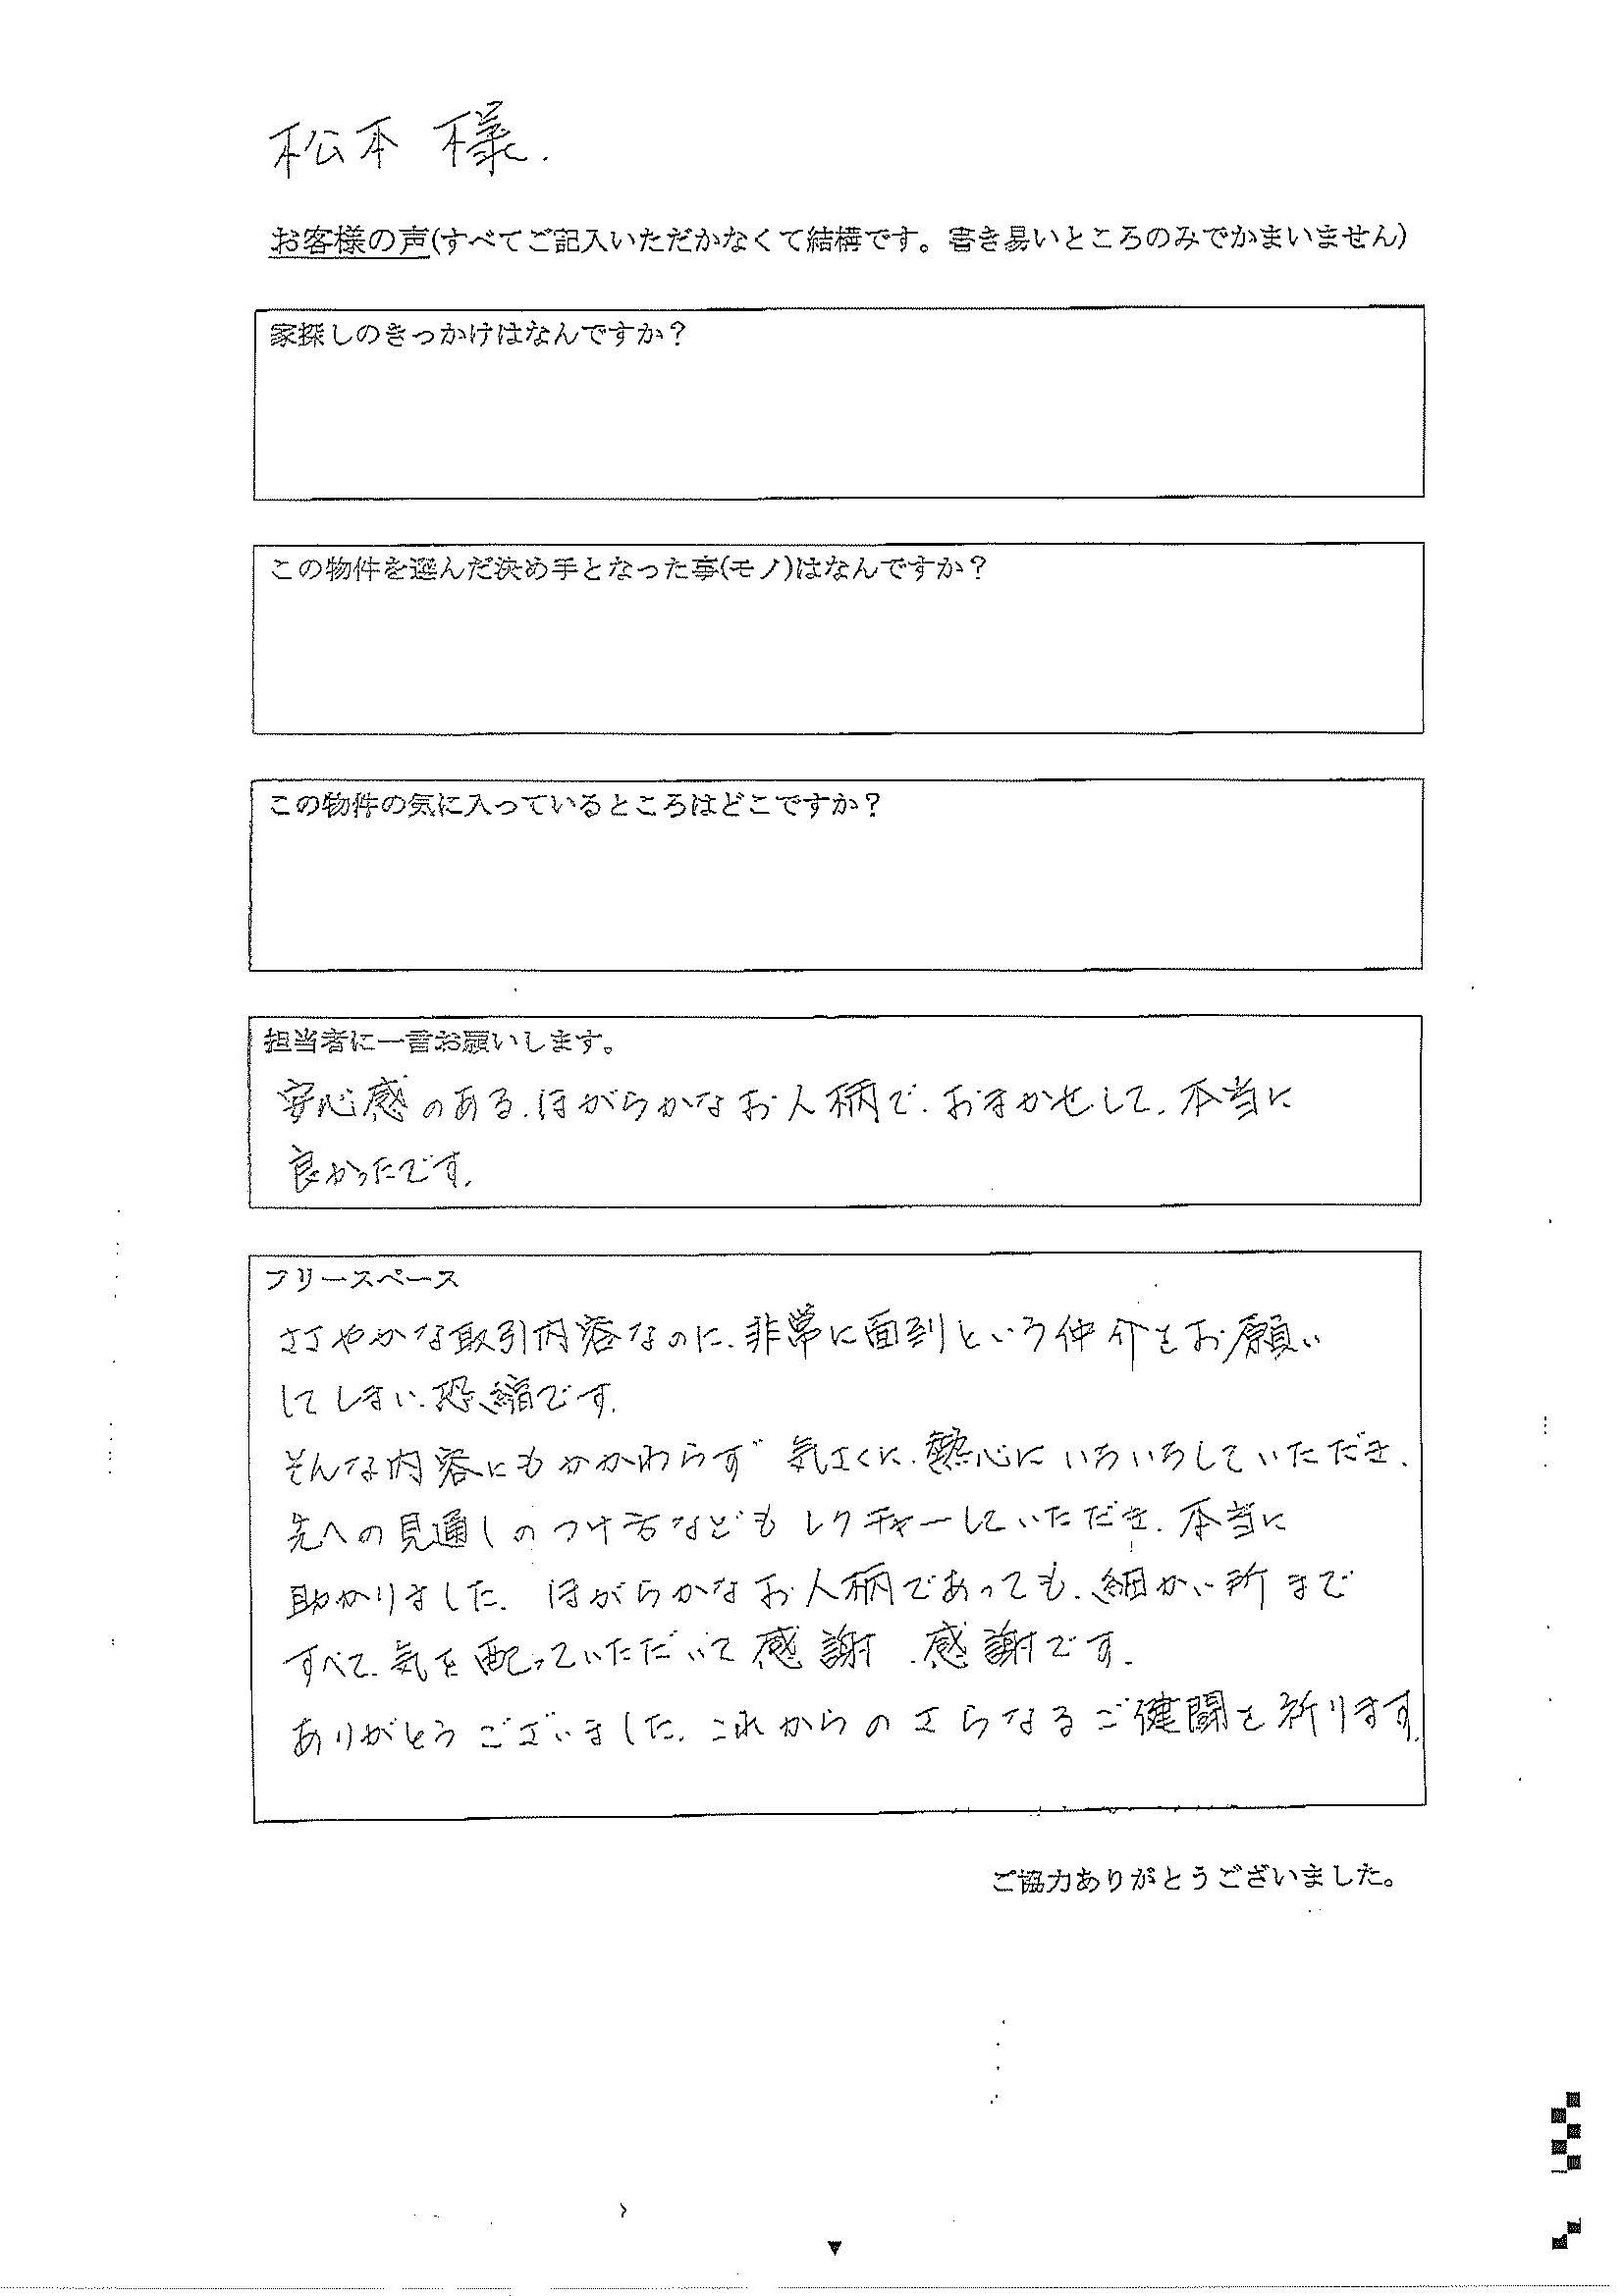 松本 様.
お客様の声(すべてご記入いただかなくて結構です。書き易いところのみでかまいません)
家探しのきっかけはなんですか？
この物件を選んだ決め手となった事(モノ)はなんですか？
この物件の気に入っているところはどこですか？
担当者に一言お願いします。
安心感のある、ほがらかなお人柄で、おまかせして、本当に
良かったです.
フリースペース
ささやかな取引内容なのに、非常に面到という仲介をお願い
してしまい、恐縮です.
そんな内容にもかかわらず 気さくに、熱心にいろいろしていただき、
先への見通しのつけ方などもレクチャーしていただき、本当に
助かりました. ほがらかなお人柄であっても、細かい所まで
すべて、気を配っていただいて感謝、感謝です.
ありがとうございました. これからのさらなるご健闘を祈ります.
ご協力ありがとうございました。